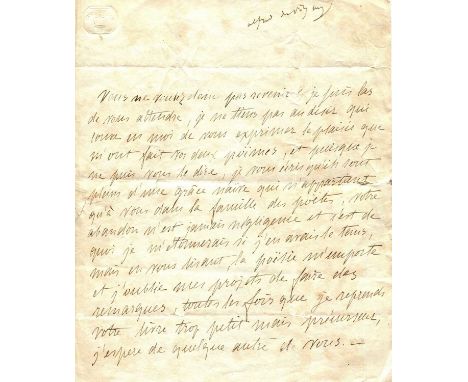 alfred de Vigny
Vous ne voulez donc pas revenir ! je suis las
de vous attendre, je ne tiens pas au desir qui
couve en moi de vous exprimer le plaisir que
m'ont fait vos deux poëmes, et puisque je
ne puis vous le dire, je vous écris qu'ils sont
pleins d'une grâce naïve qui n'appartient
qu'à vous dans la famille des poëtes, votre
abandon n'est jamais négligence et c'est de
quoi je m'étonnerais si j'en avais le tems,
mais en vous lisant, la poësie m'emporte
et j'oublie mes projets de faire des
remarques, toutes les fois que je reprends
votre livre trop petit mais précurseur,
j'espere de quelque autre et vous. —